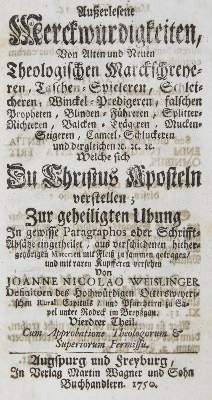 Außerlesene
Merckwürdigkeiten,
Von Alten und Neuen
Theologischen Marcktschreye-
ren, Taschen-Spieleren, Schlei-
cheren, Winckel-Predigeren, falschen
Propheten, Blinden-Führeren, Splitter-
Richteren, Balcken-Trägeren, Mucken-
Seigeren, Camel-Schluckeren
und dergleichen ꝛc. ꝛc. ꝛc.
Welche sich
Zu Christus Aposteln
verstellen;
Zur geheiligten Ubung
In gewisse Paragraphos oder Schrifft-
Absätze eingetheilet, aus verschiedenen hieher-
gehörigen mit Fleiß zusammen getragen,
und mit raren Kupfferen versehen
Von
JOANNE NICOLAO WEISLINGER
Definitoren des Hochwürdigen Ottersweyer-
ischen Rural Capituls und Pfarrherrn zu Ca-
pel unter Rodeck im Breyßgau.
Vierdter Theil.
Cum Approbatione Theologorum &
Superiorum Permissu.
Augspurg und Freyburg,
In Verlag Martin Wagner und Sohn
Buchhandlern. 1750.